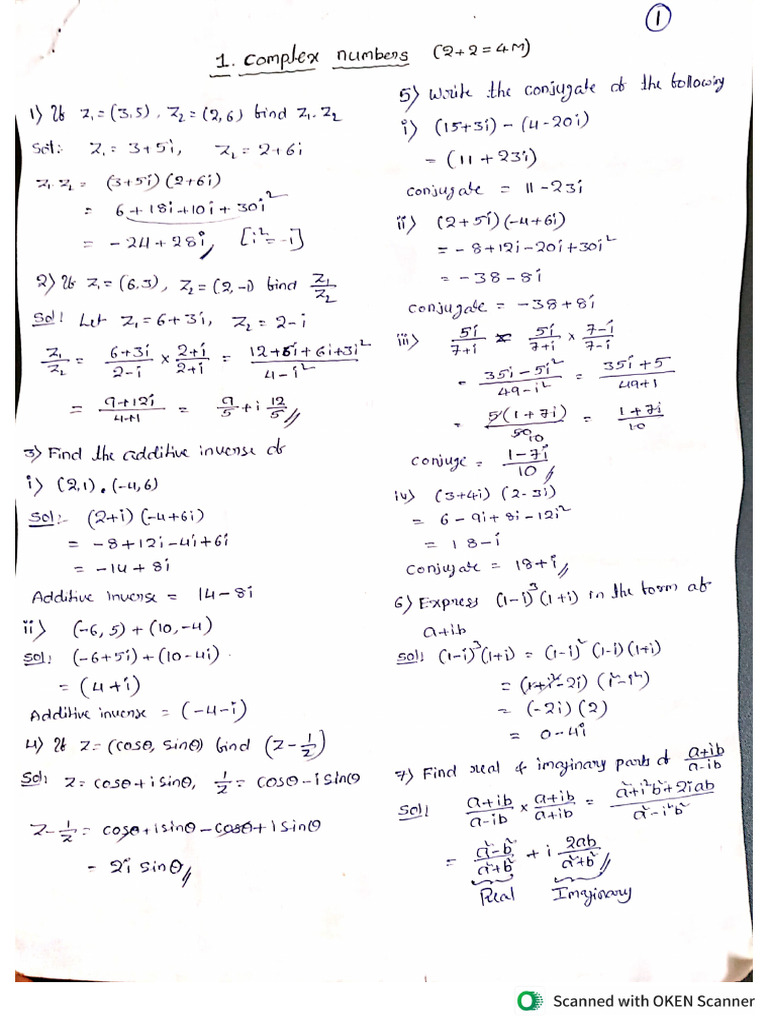 1
1. Complex numbers (2+2=4M)
1) If z₁=(3,5), z₂=(2,6) find z₁.z₂
Sol: z₁=3+5i, z₂=2+6i
z₁.z₂ = (3+5i)(2+6i)
= 6+18i+10i+30i²
= -24+28i, [i²=-1]
2) If z₁=(6,3), z₂=(2,-1) find z₁/z₂
Sol: Let z₁=6+3i, z₂=2-i
z₁/z₂ = (6+3i)/(2-i) × (2+i)/(2+i) = (12+6i+6i+3i²)/(4-i²)
= (9+12i)/(4+1) = 9/5 + i 12/5
3) Find the additive inverse of
i) (2,1).(-4,6)
Sol:- (2+i)(-4+6i)
= -8+12i-4i+6i
= -14+8i
Additive inverse = 14-8i
ii) (-6,5)+(10,-4)
Sol: (-6+5i)+(10-4i)
= (4+i)
Additive inverse = (-4-i)
4) If z=(cosθ, sinθ) find (z-1/z)
Sol: z=cosθ+isinθ, 1/z = cosθ-isinθ
z-1/z = cosθ+isinθ-cosθ+isinθ
= 2i sinθ
5) Write the conjugate of the following
i) (15+3i)-(4-20i)
= (11+23i)
Conjugate = 11-23i
ii) (2+5i)(-4+6i)
= -8+12i-20i+30i²
= -38-8i
Conjugate = -38+8i
iii) 5i/(7+i) = 5i/(7+i) × (7-i)/(7-i)
= (35i-5i²)/(49-i²) = (35i+5)/(49+1)
= 5(1+7i)/50 10 = (1+7i)/10
Conjuge = (1-7i)/10
iv) (3+4i)(2-3i)
= 6-9i+8i-12i²
= 18-i
Conjugate = 18+i
6) Express (1-i)³(1+i) in the form of
a+ib
Sol: (1-i)³(1+i) = (1-i)²(1-i)(1+i)
= (1+i²-2i)(1²-i²)
= (-2i)(2)
= 0-4i
7) Find real & imginary parts of (a+ib)/(a-ib)
Sol: (a+ib)/(a-ib) × (a+ib)/(a+ib) = (a²+i²b²+2iab)/(a²-i²b²)
= (a²-b²)/(a²+b²) + i 2ab/(a²+b²)
Real Imginary
Scanned with OKEN Scanner